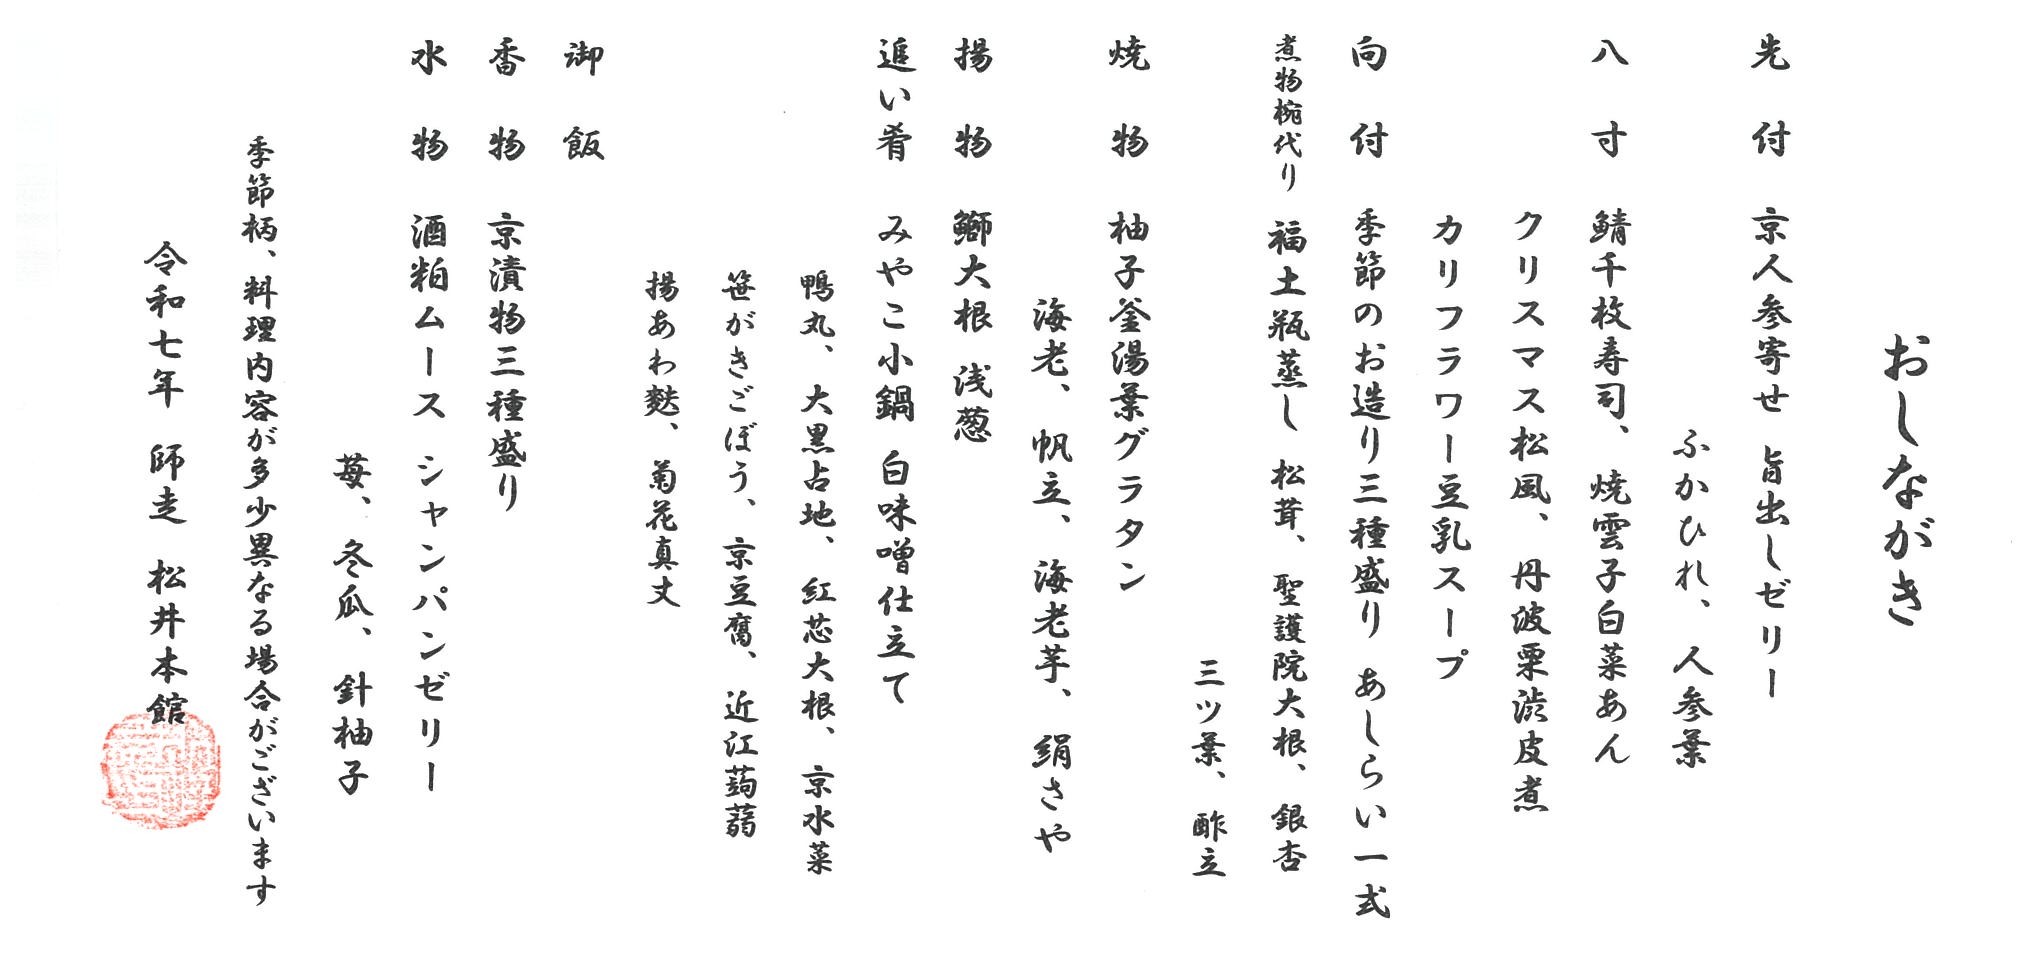 おしながき
先付 京人参寄せ 旨出しゼリー
ふかひれ、人参葉
八寸 鯖千枚寿司、焼雲子白菜あん
クリスマス松風、丹波栗渋皮煮
カリフラワー豆乳スープ
向付 季節のお造り三種盛り あしらい一式
煮物椀代り 福土瓶蒸し 松茸、聖護院大根、銀杏
三ツ葉、酢立
焼物 柚子釜湯葉グラタン
海老、帆立、海老芋、絹さや
揚物 鰤大根 浅葱
追い肴 みやこ小鍋 白味噌仕立て
鴨丸、大黒占地、紅芯大根、京水菜
笹がきごぼう、京豆腐、近江蒟蒻
揚あわ麩、菊花真丈
御飯
香物 京漬物三種盛り
水物 酒粕ムース シャンパンゼリー
苺、冬瓜、針柚子
季節柄、料理内容が多少異なる場合がございます
令和七年 師走 松井本館